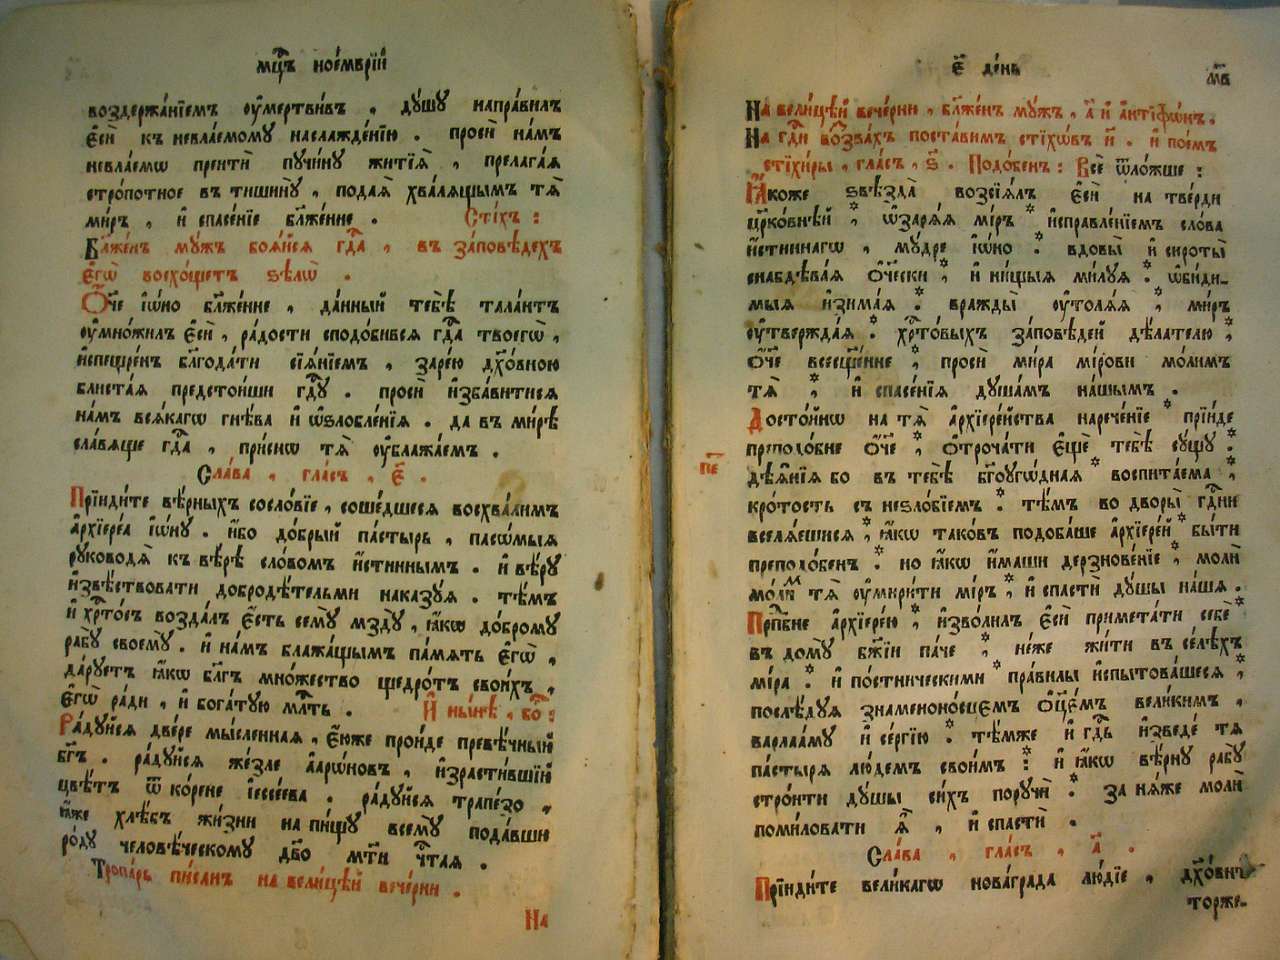 мц҃ъ ноемврїй
воздержа́нїемъ ᲂу҆мертви́въ , ду́шу напра́вилъ
є҆сѝ къ невла́емому наслажде́нїю . просѝ на́мъ
невла́емѡ преитѝ пучи́ну житїѧ̀ , прелага́ѧ
стро́потное въ тишинꙋ̀ , подаѧ̀ хва́лѧщымъ тѧ̀
ми́ръ , и҆ спасе́нїе бл҃же́нне . Сти́хъ :
Бл҃же́нъ му́жъ боѧ́йсѧ гд҇а , въ за́повѣдехъ
є҆гѡ̀ восхо́щетъ ѕѣлѡ̀ .
Ѻ҆́ч҃е і҆ѡ́но бл҃же́нне , да́нный тебѣ̀ тала́нтъ
ᲂу҆мно́жилъ є҆сѝ , ра́дости сподо́бивсѧ гд҇а твоегѡ̀ ,
и҆спещре́нъ бл҃года́ти сїѧ́нїемъ , заре́ю дх҃о́вною
блиста́ѧ предстои́ши гд҇у . просѝ и҆зба́витисѧ
на́мъ всѧ́кагѡ гнѣ́ва и҆ ѡ҆ѕлобле́нїѧ . да въ ми́рѣ
сла́вѧще гд҇а , при́снѡ тѧ̀ ᲂу҆блажа́емъ .
Сла́ва , гла́съ , є҃ .
Прїиди́те вѣ́рныхъ сосло́вїе , соше́дшесѧ восхва́лимъ
а҆рхїере́а і҆ѡ́ну . и҆́бо до́брый па́стырь , пасѡ́мыѧ
руководѧ̀ къ вѣ́рѣ сло́вомъ и҆́стиннымъ . и҆ вѣ́ру
и҆звѣ́ствовати добродѣ́тельми наказу́ѧ . тѣ́мъ
и҆ хр҇то́съ возда́лъ є҆́сть сему̀ мзду̀ , ꙗ҆́кѡ до́брому
рабу̀ своему̀ . и҆ на́мъ блажа́щымъ па́мѧть є҆гѡ̀ ,
да́руетъ ꙗ҆́кѡ бл҃гъ мно́жество щедро́тъ свои́хъ ,
є҆гѡ̀ ради , и҆ бога́тую мл҇ть . И҆ ны́нѣ , бо҇ :
Ра́дуйсѧ две́ре мы́сленнаѧ , є҆́юже про́йде преве́чный
бг҃ъ . ра́дуйсѧ же́зле а҆арѡ́новъ , и҆зрасти́вшїй
цвѣ́тъ ѿ ко́рене і҆ессе́ева . ра́дуйсѧ трапе́зо ,
ꙗ҆́же хлѣ́бъ жи́зни на пи́щу всему̀ пода́вши
ро́ду человѣ́ческому дв҃о мт҃и чт҇аѧ .
Тропа́рь пи́санъ на вели́цѣй вече́рни .
На
є҃ де́нь
м҃в
На вели́цѣй вече́рни , бл҃же́нъ му́жъ , а҃ и҆ а҆нтїфѡ́нъ .
На гд҇и возва́хъ поста́вимъ сті́хѡвъ и҃ . и҆ пое́мъ
стїхи́ры , гла́съ , ѕ҃ . Подо́бенъ : Всѐ ѿло́жше :
Ꙗ҆́коже ѕвѣзда̀ возсїѧ́лъ є҆сѝ на тве́рди
цр҃ко́внѣй * , ѡ҆зарѧ́ѧ ми́ръ * и҆справле́нїемъ сло́ва
и҆́стиннагѡ , му́дре і҆ѡ́но * . вдовы̀ и҆ сироты̀
снабдѣва́ѧ ѻ҆ч҇ески * , и҆ ни́щыѧ ми́луѧ * . ѡ҆би́ди-
мыѧ и҆зима́ѧ * . вражды̀ ᲂу҆толѧ́ѧ , * ми́ръ
ᲂу҆твержда́ѧ . * хр҇то́выхъ за́повѣдей дѣ́лателю * ,
ѻ҆́ч҃е всесщ҃е́нне * , просѝ ми́ра мі́рови мо́лимъ
тѧ̀ * , и҆ спасе́нїѧ душа́мъ на́шымъ .
Досто́йнѡ на тѧ̀ а҆рхїере́йства нарече́нїе * прїи́де
преподо́бне ѻ҆́ч҃е * , ѻ҆троча́ти є҆щѐ тебѣ̀ су́щу * .
дѣѧ́нїѧ бо въ тебѣ̀ бг҃оуго́днаѧ * воспита́ема * ,
кро́тость съ неѕло́бїемъ * . тѣ́мъ во дворы̀ гд҇ни
вселѧ́ешисѧ * , ꙗ҆́кѡ тако́въ подоба́ше а҆рхїере́й * бы́ти
преподо́бенъ * . но ꙗ҆́кѡ и҆́маши дерзнове́нїе * , молѝ
мо́лим тѧ̀ ᲂу҆мири́ти мі́ръ * , и҆ спастѝ ду́шы на́шѧ .
Прпⷣбне а҆рхїере́ю * , и҆зво́лилъ є҆сѝ примета́ти себѐ *
въ дому̀ бж҃їи па́че * , не́же жи́ти въ се́лѣхъ
мі́ра * . и҆ по́стническими * пра́вилы и҆спыто́вашесѧ * ,
послѣ́дуѧ знаменоно́сцемъ ѻ҆ц҃е́мъ вели́кимъ ,
варлаа́му и҆ се́ргїю * . тѣ́мже и҆ гд҇ь и҆зведе́ тѧ
па́стырѧ лю́демъ свои́мъ * : и҆ ꙗ҆́кѡ вѣ́рну рабу̀
стро́ити ду́шы си́хъ поручѝ * . за нѧ́же молѝ
поми́ловати ѧ҆̀ , и҆ спастѝ .
Сла́ва , гла́съ , а҃ .
Прїиди́те вели́кагѡ нова́града лю́дїе , дх҃о́внѡ
торже-
пе҇